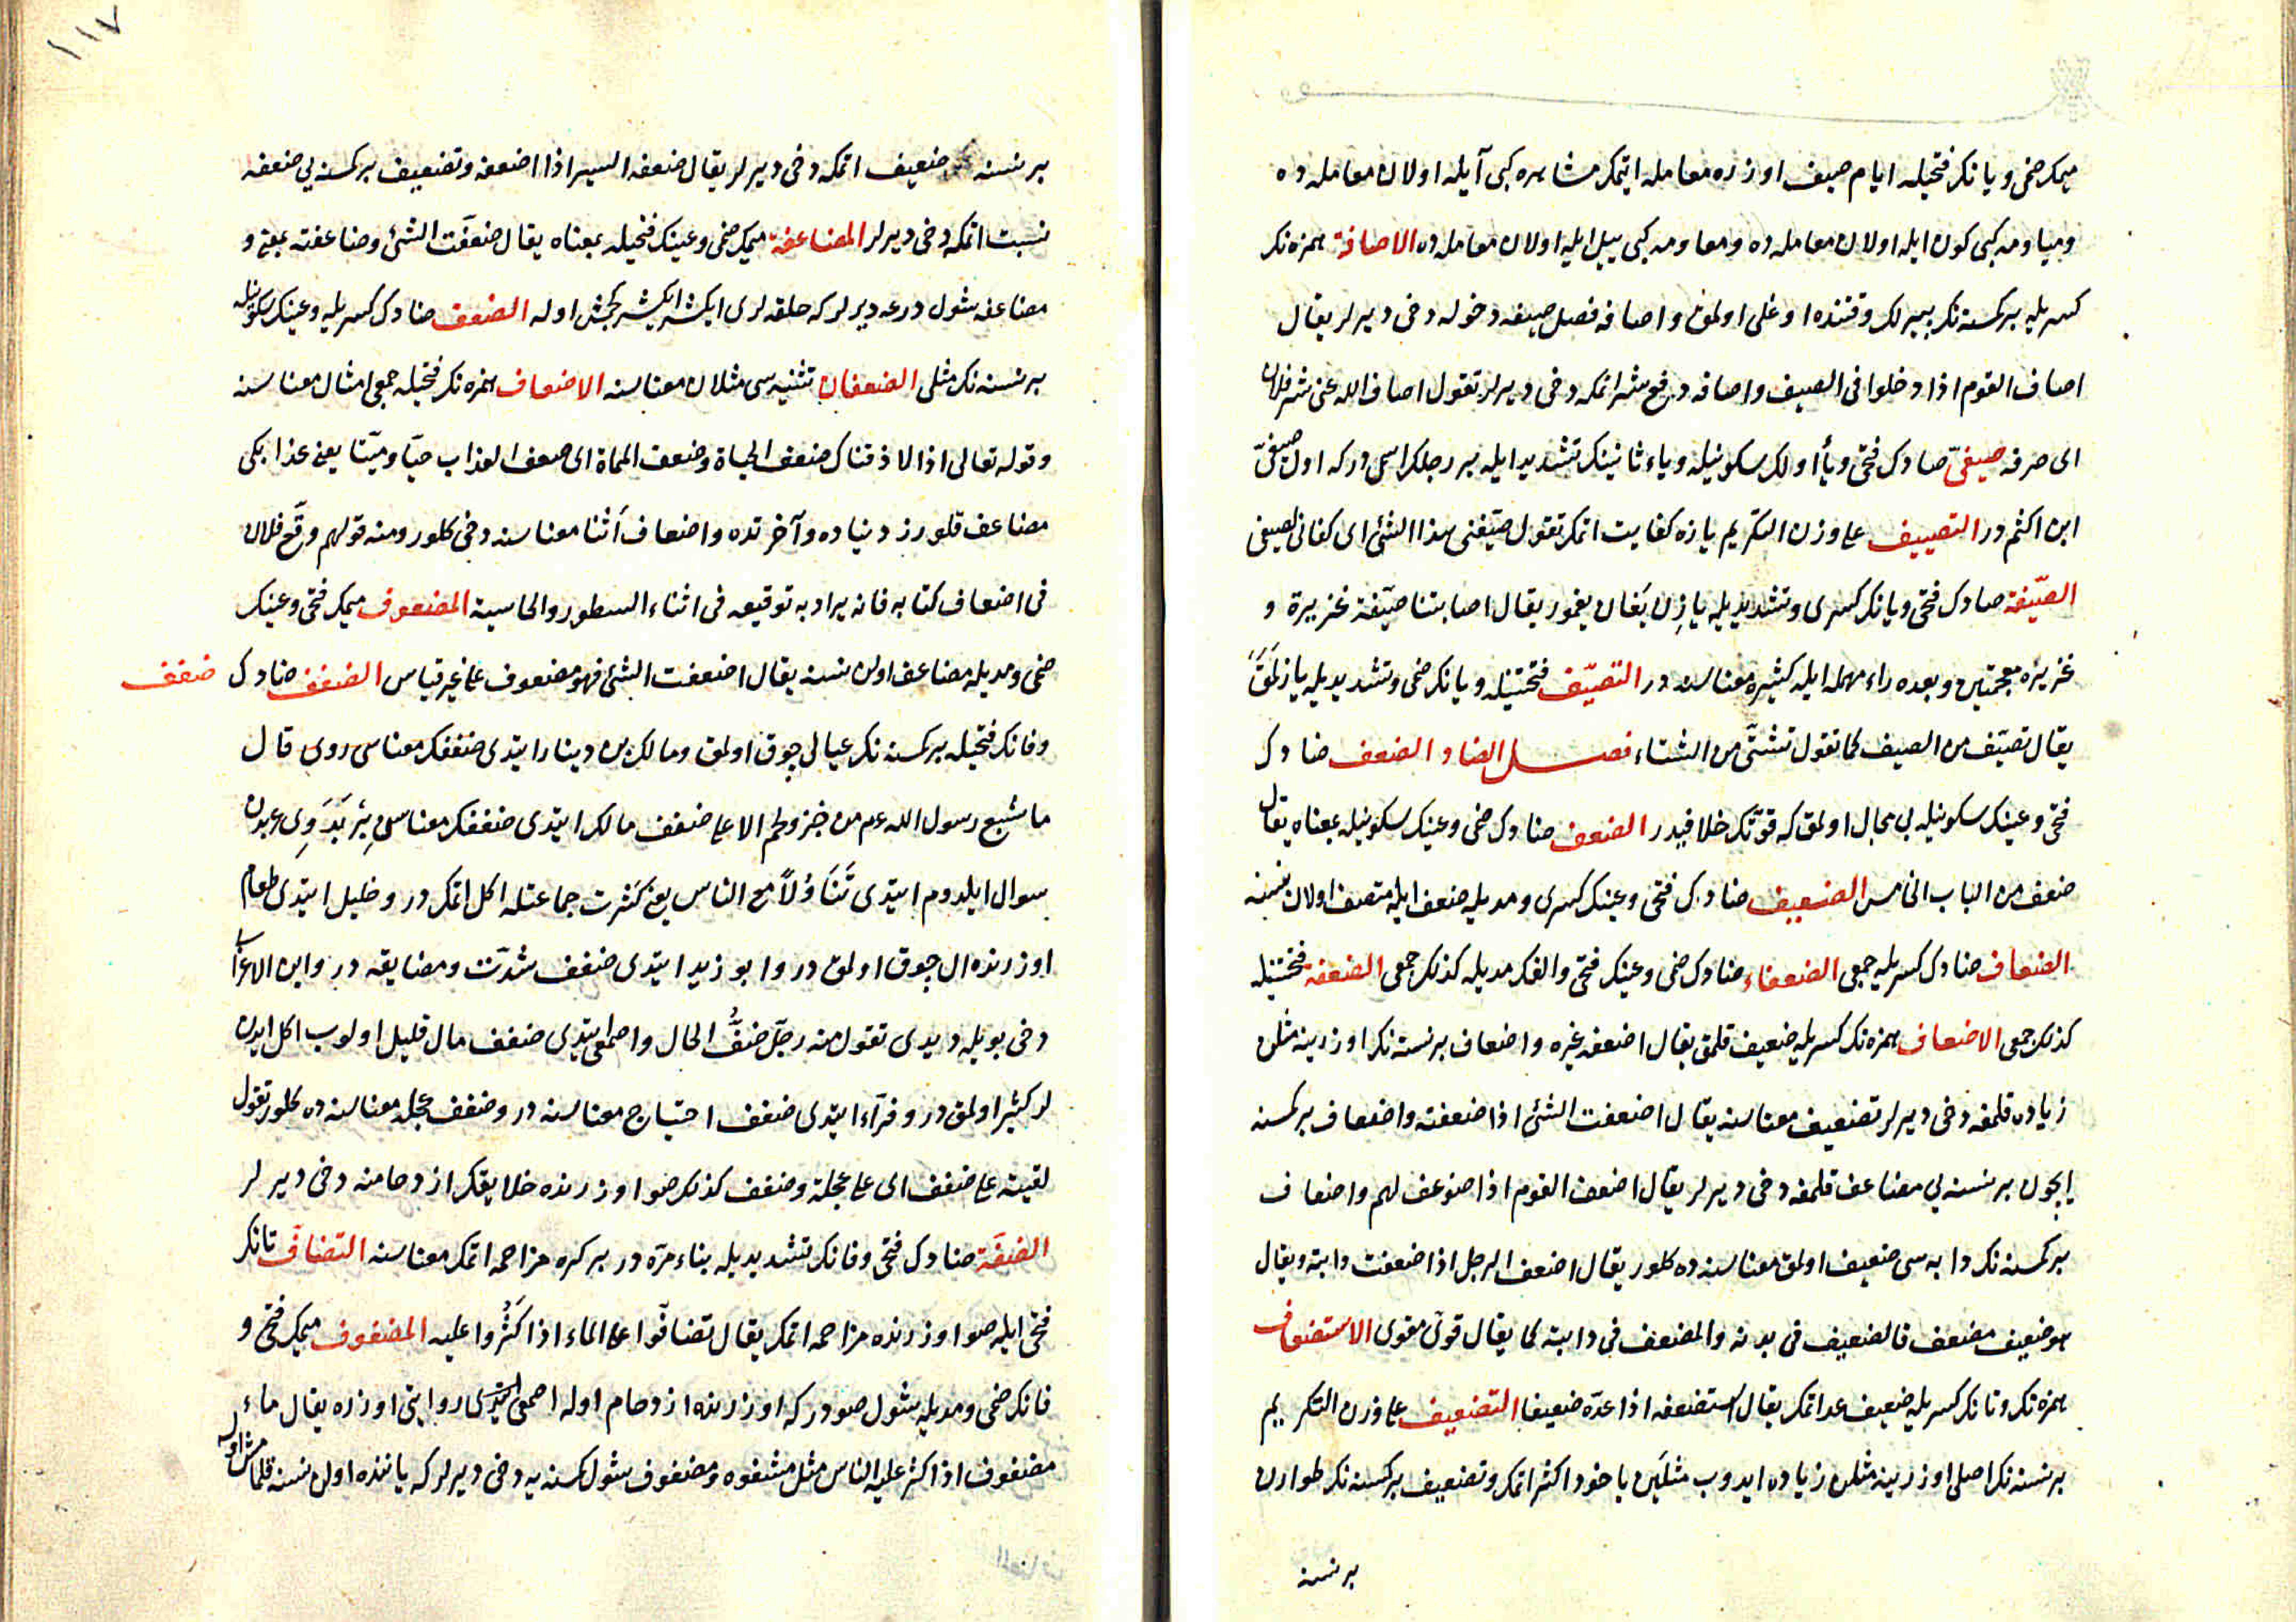 میمك ضمی و یانك فتحیله ایام صیف اوزره معامله ایتمك مشاهره كبی آیله اولان معامله ده
و میاومه كبی كون ایله اولان معامله ده و معاومه كبی ییل ایله اولان معامله ده الاصافة همزه نك
كسریله بر كمسنه نك پیرلك وقتنده اوغلی اولمق و اصافه فصل صیفه دخوله دخی دیرلر یقال
اصاف القوم اذا دخلوا فی الصیف و اصافه دفع شر اتمكه دخی دیرلر تقول اصاف الله عنی شر فلان
ای صرفه صیفیّ صادك فتحی و یأ اولك سكونیله و یاء ثانینك تشدیدایله بر رجلك اسمی در كه اول صیفیّ
ابن اكثم در التصییف علی وزن التكریم یازه كفایت اتمك تقول صیّفنی هذا الشئ ای كفانی لصیفی
الصیّفة صادك فتحی و یانك كسری و تشدیدیله یازن یَغان یغمور یقال اصابتنا صیّفة غزیرة و
غزیزه معجمتین و بعده راء مهمله ایله كثیره معناسنه در التصیّف فتحتینله و یانك ضمی و تشدیدیله یازلَمَقْ
یقال تصیّف من الصیف كما تقول تشتّی من الشتاء فصــل الضاد الضعف ضادك
فتحی و عینك سكونیله بی مجال اولمق كه قوّتك خلافیدر الضعف ضادك ضمی و عینك سكونیله بمعناه یقال
ضعف من الباب الخامس الضعیف ضادك فتحی و عینك كسری و مدیله ضعف ایله متصف اولان نسنه
الضعاف ضادك كسریله جمعی الضعفاء ضادك ضمی و عینك فتحی و الفك مدیله كذلك جمعی الضعفة فتحتینله
كذلك جمعی الاضعاف همزه نك كسریله ضعیف قلمق یقال اضعفه غیره و اضعاف بر نسنه نك اوزرینه مثلن
زیاده قلمغه دخی دیرلر تضعیف معناسنه یقال اضعفت الشئ اذا ضعفته و اضعاف بر كمسنه
ایچون بر نسنه یی مضاعف قلمغه دخی دیرلر یقال اضعف القوم اذا ضوعف لهم و اضعاف
بر كمسنه نك دابه سی ضعیف اولمق معناسنه ده كلور یقال اضعف الرجل اذا ضعفت دابته و یقال
هو ضعیف مضعف فالضعیف فی بدنه و المضعف فی دابته كما یقال قویّ مقوی الاستضعاف
همزه نك و تانك كسریله ضعیف عد اتمك یقال استضعفه اذا عدّه ضعیفا التضعیف علی وزن التكریم
بر نسنه نك اصلی اوزرینه مثلن زیاده ایدوب مثلَین یاخود اكثر اتمك و تضعیف بر كمسنه نك طوارن
بر نسنه
١١٧
بر نسنه ضعیف اتمكه دخی دیرلر یقال ضعفه السیر اذا اضعفه و تضعیف بر كمسنه یی ضعفه
نسبت اتمكه دخی دیرلر المضاعفة میمك ضمی و عینك فتحیله بمعناه یقال ضعّفت الشئ و ضاعفته بمعنی و
مضاعفه شول درعه دیرلر كه حلقه لری ایكیشر ایكیشر كچمش اوله الضعف ضادك كسریله و عینك سكونیله
بر نسنه نك مثلی الضعفان تثنیه سی مثلان معناسنه الاضعاف همزه نك فتحیله جمعی امثال معناسنه
و قوله تعالی اذا لاذقناك ضعف الحیاة و ضعف المماة ای ضعف العذاب حیّا و میّتا یعنی عذابكی
مضاعف قلورز دنیاده و آخرتده و اضعاف أثنا معناسنه دخی كلور و منه قولهم وقّع فلان
فی اضعاف كتابه فانه یراد به توقیعه فی اثناء السطور و الحاشیة المضعوف میمك فتحی و عینك
ضمی و مدیله مضاعف اولن نسنه یقال اضعفت الشئ فهو مضعوف علی غیر قیاس الضفف ضادك
ضفف
و فانك فتحیله بر كمسنه نك عیالی چوق اولمق و مالك بن دینار ایتدی ضففك معناسی روی قال
ما شبع رسول الله عم من خبز و لحم الا علی ضفف مالك ایتدی ضففك معناسن بِرْ بَدَوِی عربدن
سوال ایلدوم ایتدی تَنَاوُلاً مع الناس یعنی كثرت جماعتله اكل اتمك در و خلیل ایتدی طعام
اوزرنده ال چوق اولمق در و ابو زید ایتدی ضفف شدّت و مضایقه در و ابن الاعرابی
دخی بویله دیدی تقول منه رجل ضفُّ الحال و اصمعی ایتدی ضفف مال قلیل اولوب اكل ایدن
لر كثیر اولمق در و فرّاء ایتدی ضفف احتیاج معناسنه در و ضفف عجله معناسنه ده كلور تقول
لقیته علی ضفف ای علی عجلة و ضفف كذلك صو اوزرنده خلایقك ازدحامنه دخی دیرلر
الضفّة ضادك فتحی و فانك تشدیدیله بناء مرّه در بر كره مزاحمه اتمك معناسنه التضافّ تانك
فتحی ایله صو اوزرنده مزاحمه اتمك یقال تضافّوا علی الماء اذا كثُروا علیه المضفوف میمك فتحی و
فانك ضمی و مدیله شول صودر كه اوزرنده ازدحام اوله اصمعی ایتدی روایتی اوزره یقال ماء
مضفوف اذا كثر علیه الناس مثل مشفوه و مضفوف شول كمسنه یه دخی دیرلر كه یاننده اولن نسنه قلمامش اوله